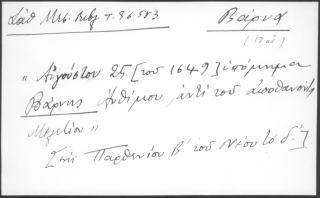 Σάθ Μεσ. Βιβλ Γ. σ 583
Βάρνα
(17 αἰ.)
" Αὐγούστου 25 [τοῦ 1649] ὑπόμνημα
Βάρνης Ἀνθίμου, ἀντί τοῦ ἀποθανόντος
Μελετίου "
[ἐπί Παρθενίου Β΄. τοῦ Νέου τό δ΄.]